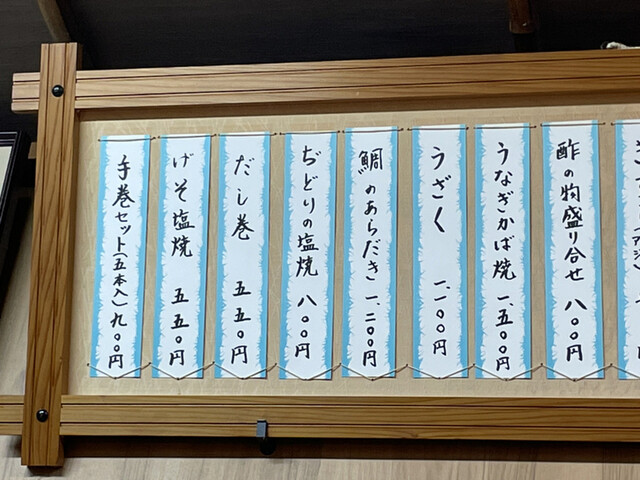 酢の物盛り合せ 八〇〇円
うなぎかば焼 一、五〇〇円
うざく 一、一〇〇円
鯛のあらだき 一、二〇〇円
ぢどりの塩焼 八〇〇円
だし巻 五五〇円
げそ塩焼 五五〇円
手巻セット(五本入) 九〇〇円